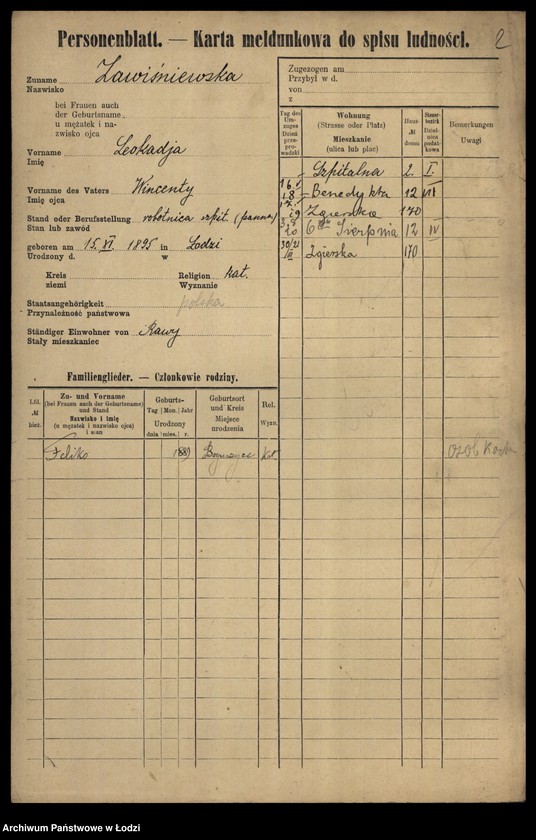 Personenblatt. — Karta meldunkowa do spisu ludności.
2
Zuname
Nazwisko
Zawiśniewska
bei Frauen auch
der Geburtsname
u mężatek i na-
zwisko ojca
Vorname
Imię
Leokadja
Vorname des Vaters
Imię ojca
Wincenty
Stand oder Berufsstellung
Stan lub zawód
robotnica szpit. (panna)
geboren am 15. VI. 1895 in Łodzi
Urodzony d. w
Kreis
ziemi
Religion kat.
Wyznanie
Staatsangehörigkeit
Przynależność państwowa
polska
Ständiger Einwohner von Rawy
Stały mieszkaniec
Zugezogen am
Przybył w d.
von
z
Tag des Um-
zuges
Dzień
prze-
prowadzki
Wohnung
(Strasse oder Platz)
Mieszkanie
(ulica lub plac)
Haus-
№
domu
Steuer-
bezirk
Dziel-
nica
podat-
kowa
Bemerkungen
Uwagi
Szpitalna 2. I.
Benedykta 12 VII
Zgierska 170
6go Sierpnia 12 IV
30/21 III Zgierska 170
Familienglieder. — Członkowie rodziny.
Lfd.
№
bież.
Zu- und Vorname
(bei Frauen auch der Geburtsname)
und Stand
Nazwisko i imię
(u mężatek i nazwisko ojca)
i stan
Geburts-
Tag Mon. Jahr
Urodzony
dnia mies. r.
Geburtsort
und Kreis
Miejsce
urodzenia
Rel.
Wyzn.
Feliks 1889 kat.
osob
Archiwum Państwowe w Łodzi